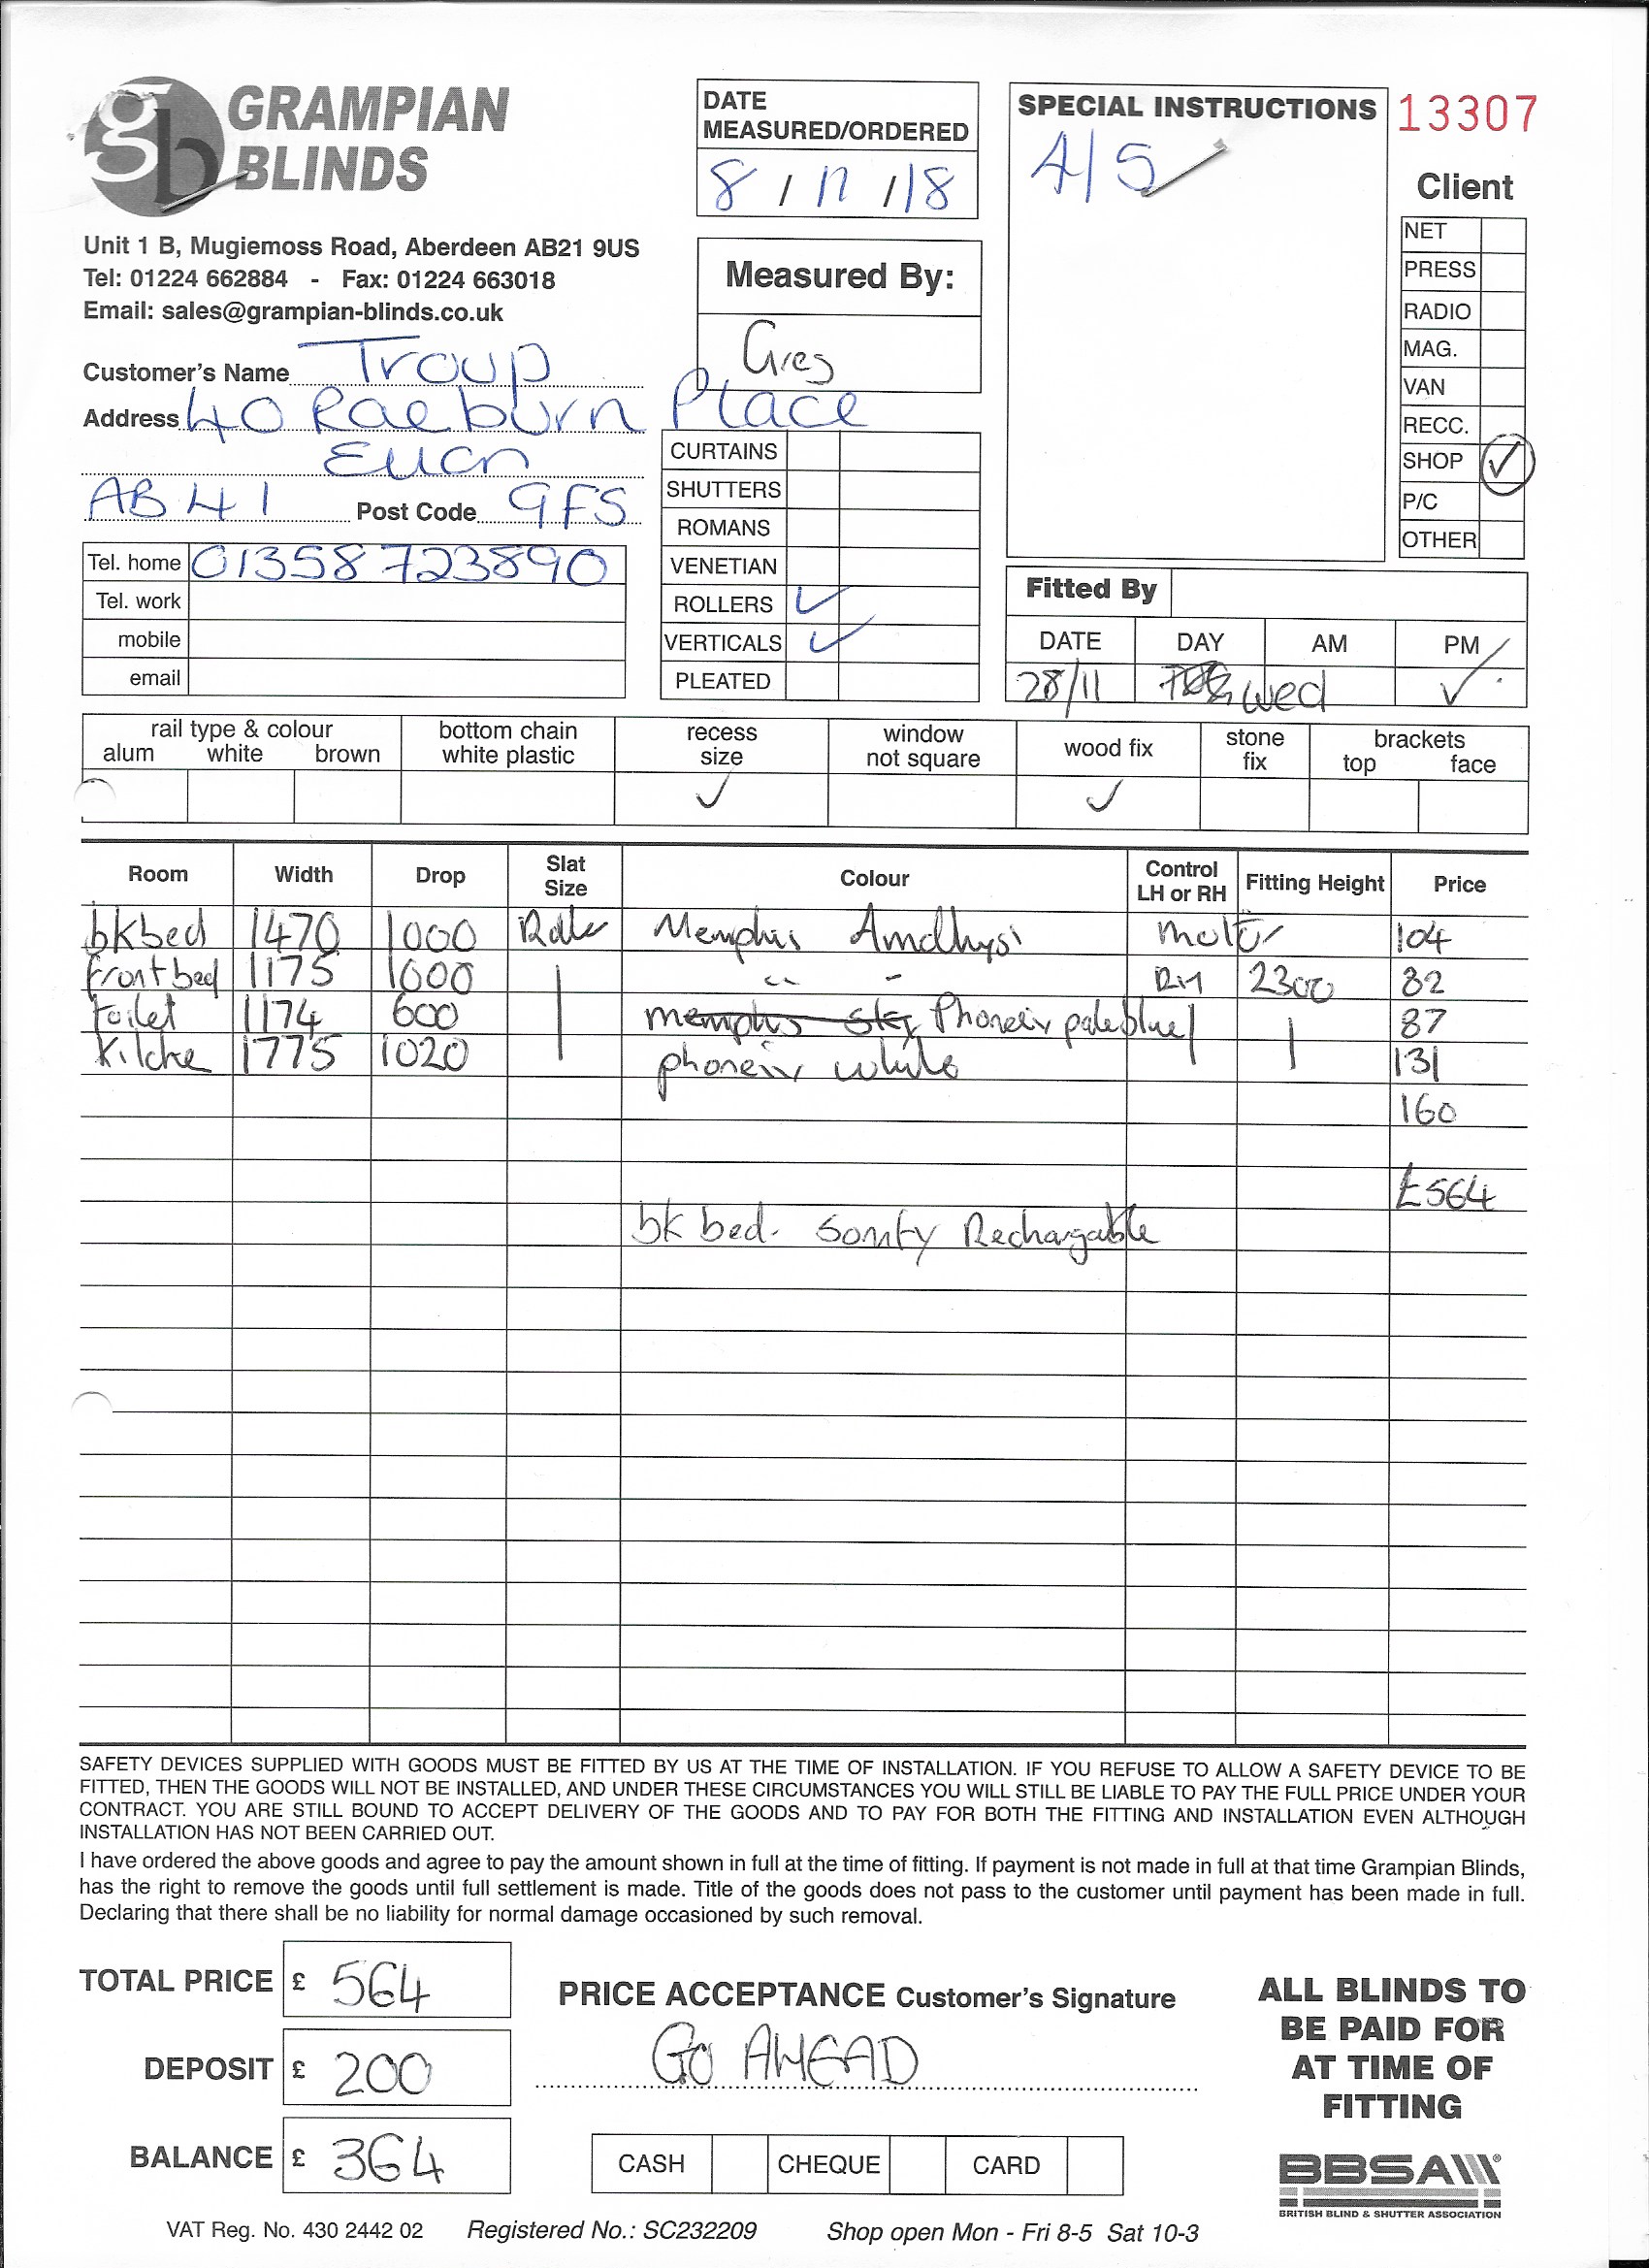 GRAMPIAN
BLINDS
Unit 1 B, Mugiemoss Road, Aberdeen AB21 9US
Tel: 01224 662884 - Fax: 01224 663018
Email: sales@grampian-blinds.co.uk
DATE
MEASURED/ORDERED
8 / 11 / 18
Measured By:
Greg
SPECIAL INSTRUCTIONS
4/5
13307
Client
NET
PRESS
RADIO
MAG.
VAN
RECC.
SHOP ✓
P/C
OTHER
Customer's Name Troup
Address 40 Raeburn Place
Ellon
AB41 Post Code 9FS
Tel. home 01358 723890
Tel. work
mobile
email
CURTAINS
SHUTTERS
ROMANS
VENETIAN
ROLLERS ✓
VERTICALS ✓
PLEATED
Fitted By
DATE DAY AM PM
28/11 Wed ✓
rail type & colour bottom chain recess window wood fix stone brackets
alum white brown white plastic size not square fix top face
✓ ✓
Room Width Drop Slat Size Colour Control LH or RH Fitting Height Price
bk bed 1470 1000 Roller Memphis Amethyst motor 104
front bed 1175 1000 " " RH 2300 82
toilet 1174 600 memphis sky Phoneix pale blue 87
Kitche 1775 1020 phoneix white 131
160
£564
bk bed. Somfy Rechargable
SAFETY DEVICES SUPPLIED WITH GOODS MUST BE FITTED BY US AT THE TIME OF INSTALLATION. IF YOU REFUSE TO ALLOW A SAFETY DEVICE TO BE
FITTED, THEN THE GOODS WILL NOT BE INSTALLED, AND UNDER THESE CIRCUMSTANCES YOU WILL STILL BE LIABLE TO PAY THE FULL PRICE UNDER YOUR
CONTRACT. YOU ARE STILL BOUND TO ACCEPT DELIVERY OF THE GOODS AND TO PAY FOR BOTH THE FITTING AND INSTALLATION EVEN ALTHOUGH
INSTALLATION HAS NOT BEEN CARRIED OUT.
I have ordered the above goods and agree to pay the amount shown in full at the time of fitting. If payment is not made in full at that time Grampian Blinds,
has the right to remove the goods until full settlement is made. Title of the goods does not pass to the customer until payment has been made in full.
Declaring that there shall be no liability for normal damage occasioned by such removal.
TOTAL PRICE £ 564
DEPOSIT £ 200
BALANCE £ 364
PRICE ACCEPTANCE Customer's Signature
GO AHEAD
CASH CHEQUE CARD
ALL BLINDS TO
BE PAID FOR
AT TIME OF
FITTING
BBSA
BRITISH BLIND & SHUTTER ASSOCIATION
VAT Reg. No. 430 2442 02 Registered No.: SC232209 Shop open Mon - Fri 8-5 Sat 10-3